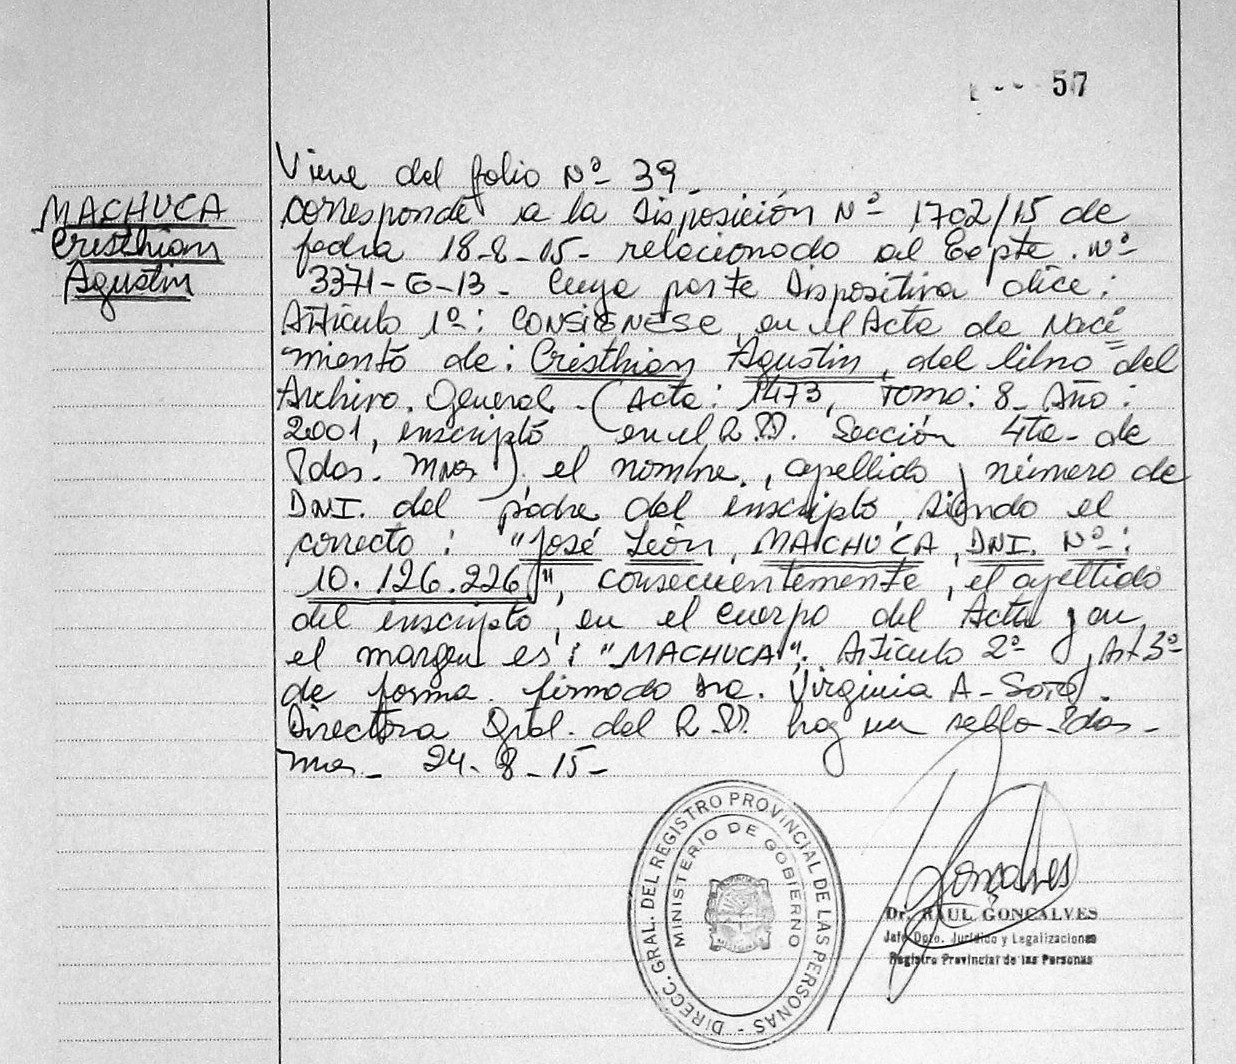 57
MACHUCA
Cristhian
Agustin
Viene del folio Nº 39_
corresponde a la Disposición Nº 1702/15 de
fecha 18-8-15- relacionado al Expte. Nº
3371-G-13- Cuya parte Dispositiva dice:
Artículo 1º: CONSIGNESE, en el Acta de Naci=
miento de: Cristhian Agustin, del libro del
Archivo. General. (Acta: 1473, Tomo: 8_ Año:
2001, inscripto en el R.P. Sección 4ta- de
Pdas. Mnes). el nombre, apellido y número de
DNI. del padre del inscripto, siendo el
correcto: "José León, MACHUCA, DNI. Nº:
10.126.226", consecuentemente, el apellido
del inscripto, en el cuerpo del Acta y en
el margen es: "MACHUCA". Artículo 2º y Art 3º
de forma. firmado Dra. Virginia A- Soto.
Directora Gral. del R.P. hay un sello- Pdas-
Mnes_ 24-8-15-
DIRECC. GRAL. DEL REGISTRO PROVINCIAL DE LAS PERSONAS -
MINISTERIO DE GOBIERNO
Gonçalves
Dr. RAUL GONCALVES
Jefe Dpto. Jurídico y Legalizaciones
Registro Provincial de las Personas